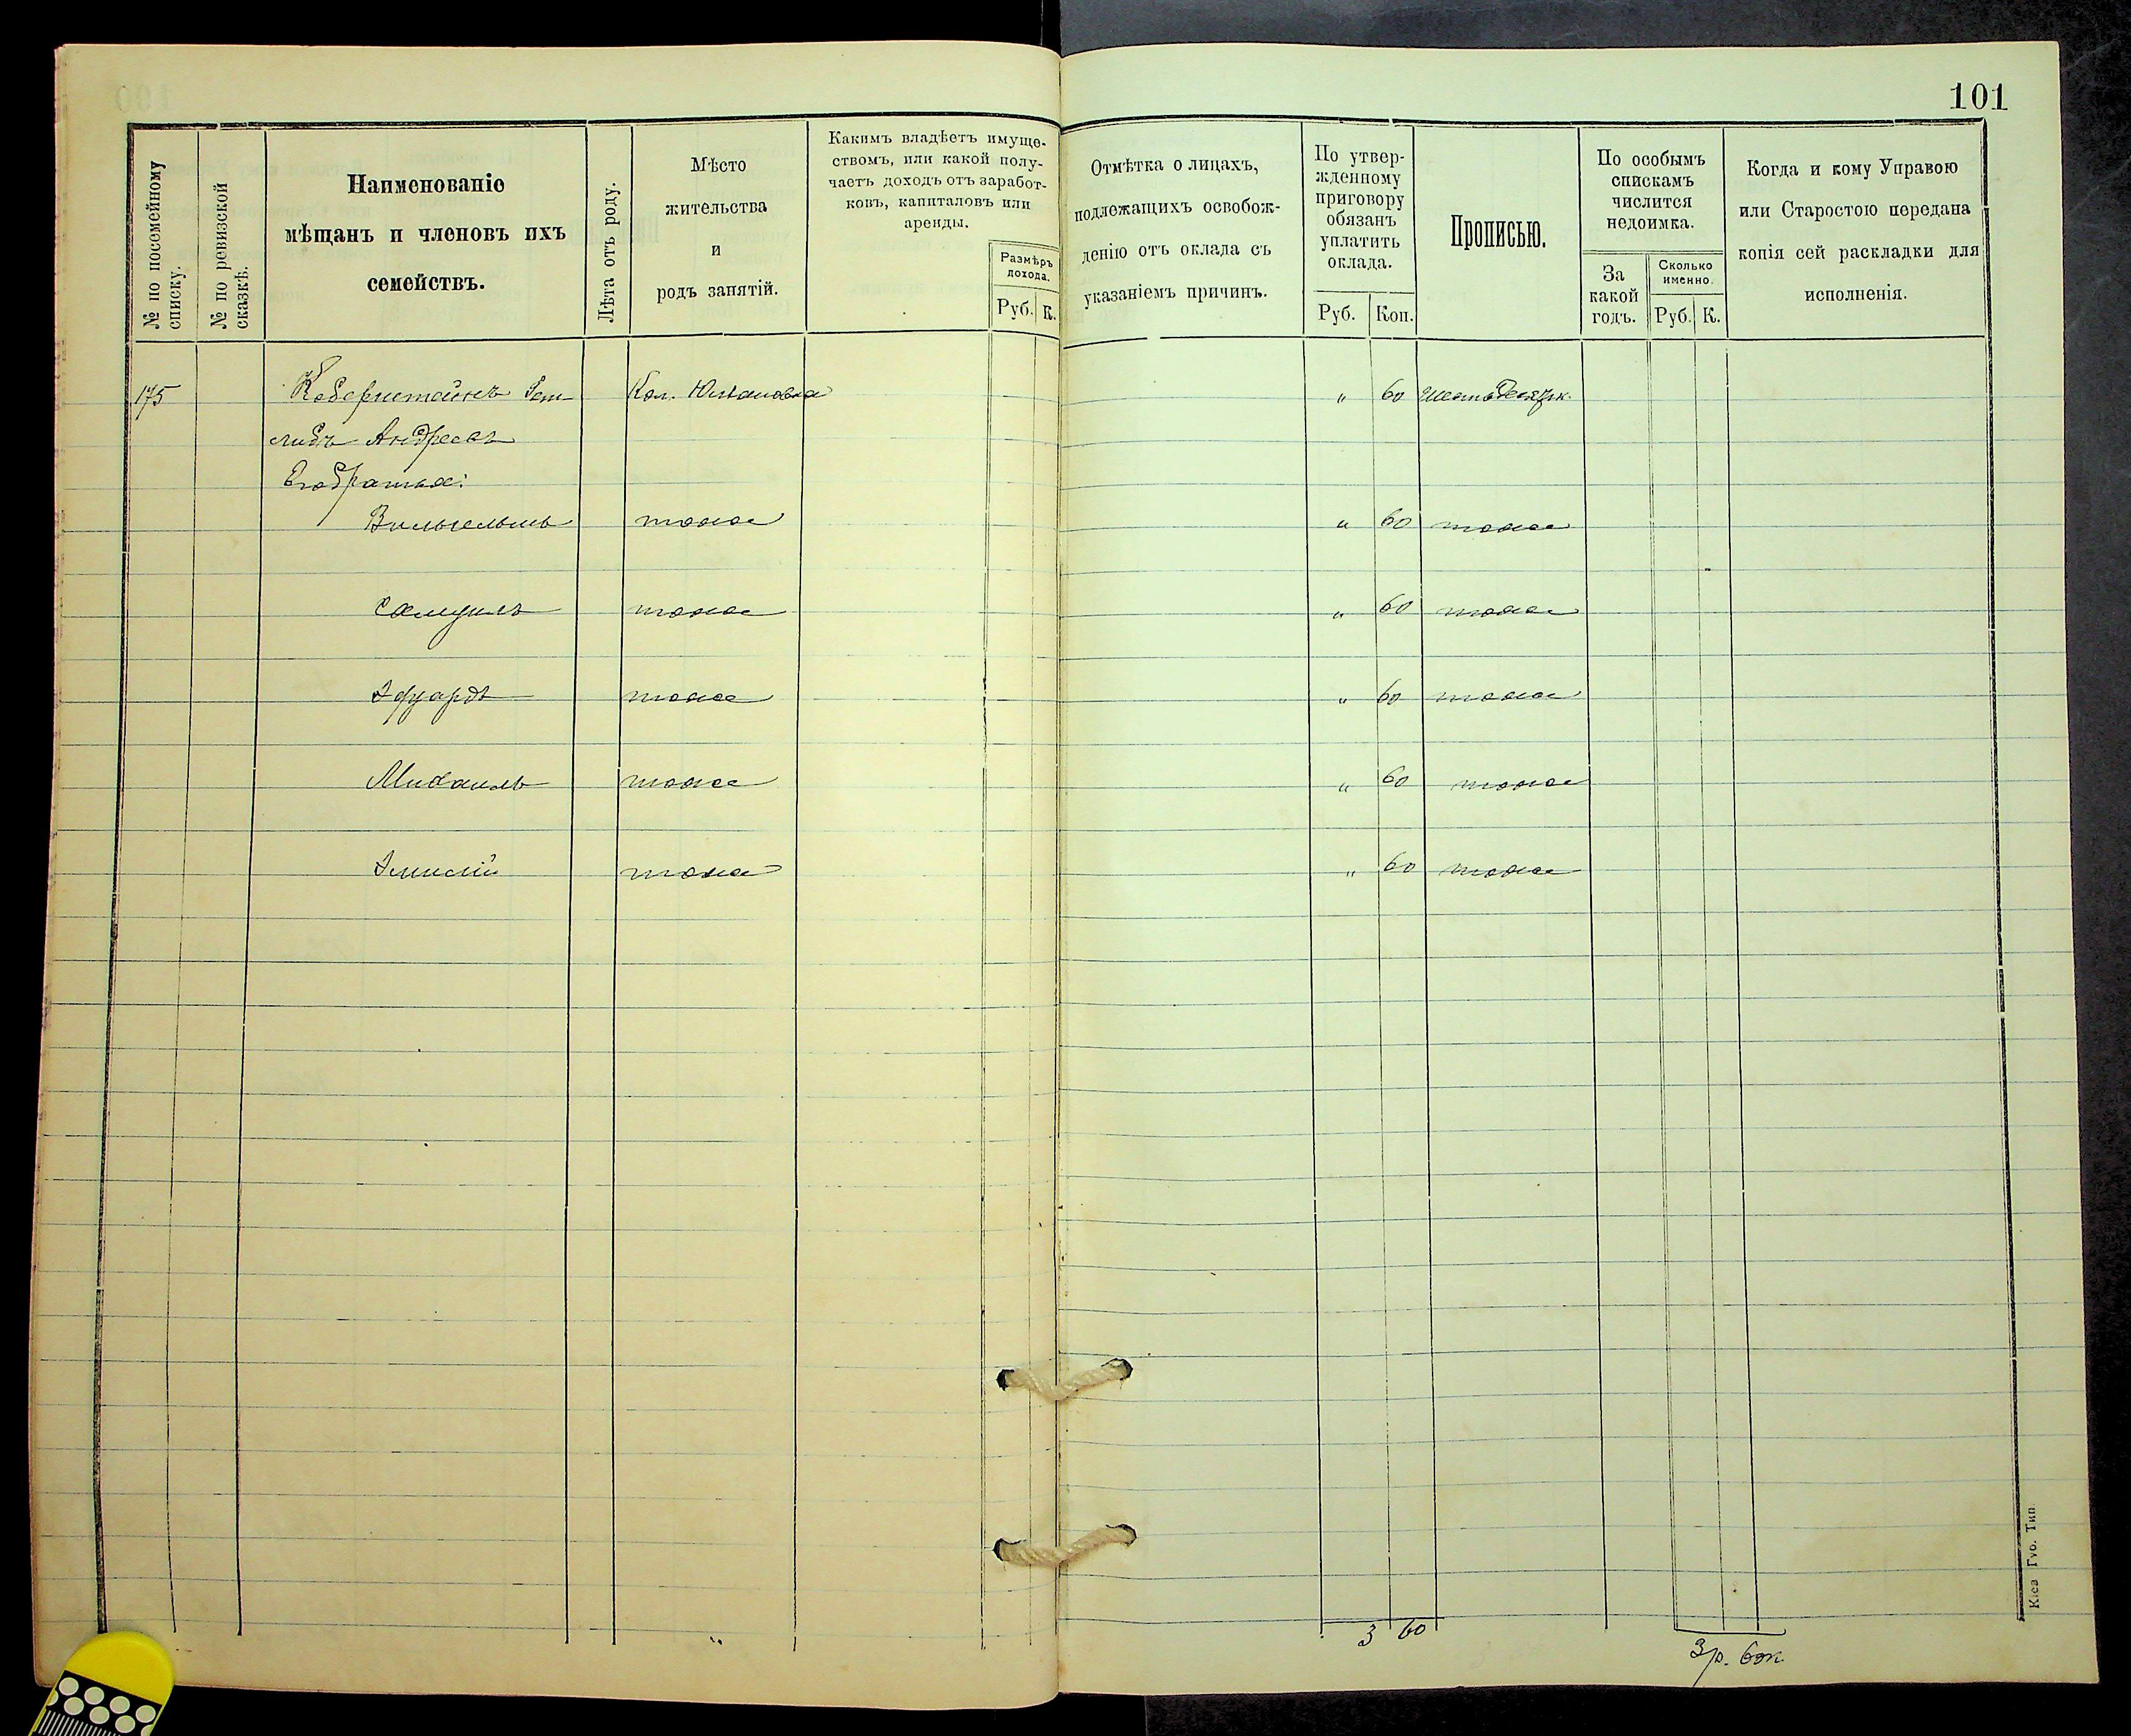 101
№ по посемейному списку.
№ по ревизской сказкѣ.
Наименованіе
мѣщанъ и членовъ ихъ
семействъ.
Лѣта отъ роду.
Мѣсто
жительства
и
родъ занятій.
Какимъ владѣетъ имуще-
ствомъ, или какой полу-
чаетъ доходъ отъ заработ-
ковъ, капиталовъ или
аренды.
Размѣръ
дохода.
Руб. К.
Отмѣтка о лицахъ,
подлежащихъ освобож-
денію отъ оклада съ
указаніемъ причинъ.
По утвер-
жденному
приговору
обязанъ
уплатить
оклада.
Руб. Коп.
Прописью.
По особымъ
спискамъ
числится
недоимка.
За
какой
годъ.
Сколько
именно.
Руб. К.
Когда и кому Управою
или Старостою передана
копія сей раскладки для
исполненія.
175 Каберштейнъ Гот- Кол. " 60 Шестьдесят к.
либъ Андреевъ
Его братья:
Вильгельмъ тоже " 60 тоже
Самуилъ тоже " 60 тоже
Эдуардъ тоже " 60 тоже
Михаилъ тоже " 60 тоже
Эмилій тоже " 60 тоже
3 60
3 р. 60 к.
Кіев. Губ. Тип.